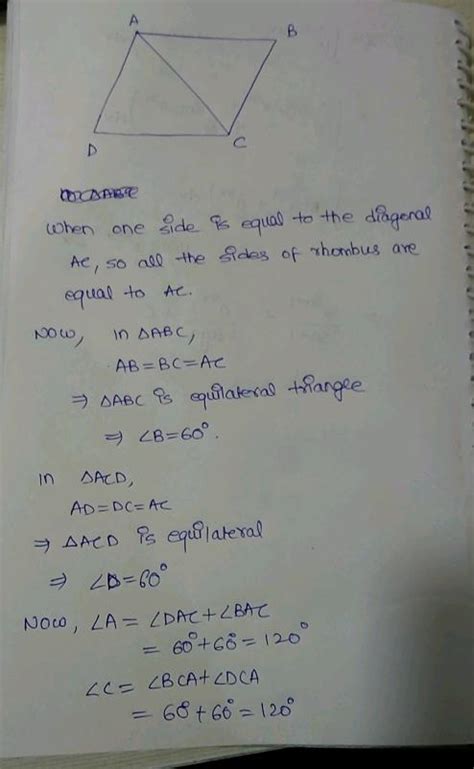 A
B
D
C
When one side is equal to the diagenal
AC, so all the sides of rhombus are
equal to AC.
NOW, in ΔABC,
AB=BC=AC
⇒ ΔABC is equilateral triangle
⇒ ∠B=60°.
In ΔACD,
AD=DC=AC
⇒ ΔACD is equilateral
⇒ ∠D=60°
NOW, ∠A = ∠DAC+∠BAC
= 60°+60°=120°
∠C= ∠BCA+∠DCA
= 60°+60°=120°